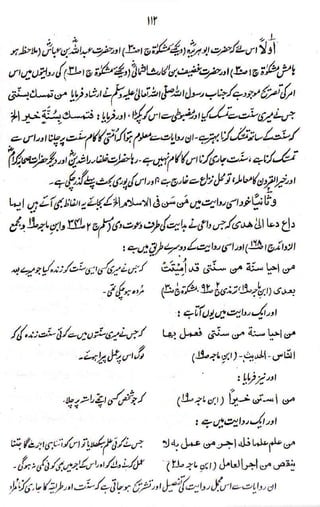 ۱۱۲
اولاً اس لئے کہ حضرت ابوہریرہؓ (دیکھئے مشکوٰۃ ج۱ ص۳۰) اور حضرت عبداللہ بن عباسؓ (ملاحظہ ہو
ہامش مشکوٰۃ ج۱ ص۳۰) اور حضرت غضیف بن الحارث الثمالیؓ (دیکھئے مشکوٰۃ ج۱ ص۳۱) کی روایتوں میں اس
امر کی تصریح موجود ہے کہ جناب رسول اللہ صلی اللہ تعالیٰ علیہ وسلم نے ارشاد فرمایا من تمسک بسنتی
جس نے میری سنت سے تمسک کیا اور مضبوطی سے اس کو پکڑا، اور فرمایا، فتمسک بسنۃ خیر الخ
کہ سنت کے ساتھ تمسک کرنا بہتر ہے۔ ان روایات سے معلوم ہوا کہ اُمتی کا کام سنت پر چلنا اور اس سے
تمسک کرنا ہے، سنت جاری کرنا اس کا کام نہیں ہے۔ رہا حضرات خلفاء راشدینؓ اور دیگر حضرات صحابہ کرامؓ
اور خیر القرون کا معاملہ، تو محل نزاع سے خارج ہے اور اس کی پوری بحث پہلے گذر چکی ہے۔
وثانیاً خود اسی روایت میں من سن فی الاسلام الخ کے بجائے یہ الفاظ بھی آئے ہیں ایما
داع دعا الیٰ ھدی کہ جس داعی نے ہدایت کی طرف دعوت دی (مسلم ج۲ ص۳۴۱ وابن ماجہ ص۱۹ و مجمع
الزوائد ج۱ ص۱۶۸) اور اسی روایت کے دوسرے طرق میں ہے:
من احیا سنۃ من سنتی قد اُمیتت کہ جس نے میری کسی ایسی سنت کو زندہ کیا جو میرے بعد
بعدی (ابن ماجہ ص۱۹، ترمذی ج۲ ص۹۲، مشکوٰۃ ج۱ ص۳۰) مردہ ہو چکی تھی۔
اور ایک روایت میں یوں آتا ہے:
من احیا سنۃ من سنتی فعمل بھا کہ جس نے میری سنتوں میں سے کوئی سنت زندہ کی کہ
الناس۔ الحدیث۔ (ابن ماجہ ص۱۹) لوگ اس پر عمل پیرا ہوئے۔
اور نیز فرمایا:
من استن خیراً (ابن ماجہ ص۱۹) کہ جو شخص کسی اچھے راستہ پر چلا۔
اور ایک روایت میں ہے:
من علم علما فلہ اجر من عمل بہ لا جس نے کوئی علم سکھلایا تو اس کو اتنا ہی اجر ملے گا جتنا
ینقص من اجر العامل (ابن ماجہ ص۲۱) عمل کرنے والے کو اور اس کے اجر میں بھی کوئی کمی نہ ہوگی۔
ان روایات سے اس مجمل روایت کی تفصیل اور تشریح ہو جاتی ہے کہ سنت اور طریقہ کا جاری کرنا مراد